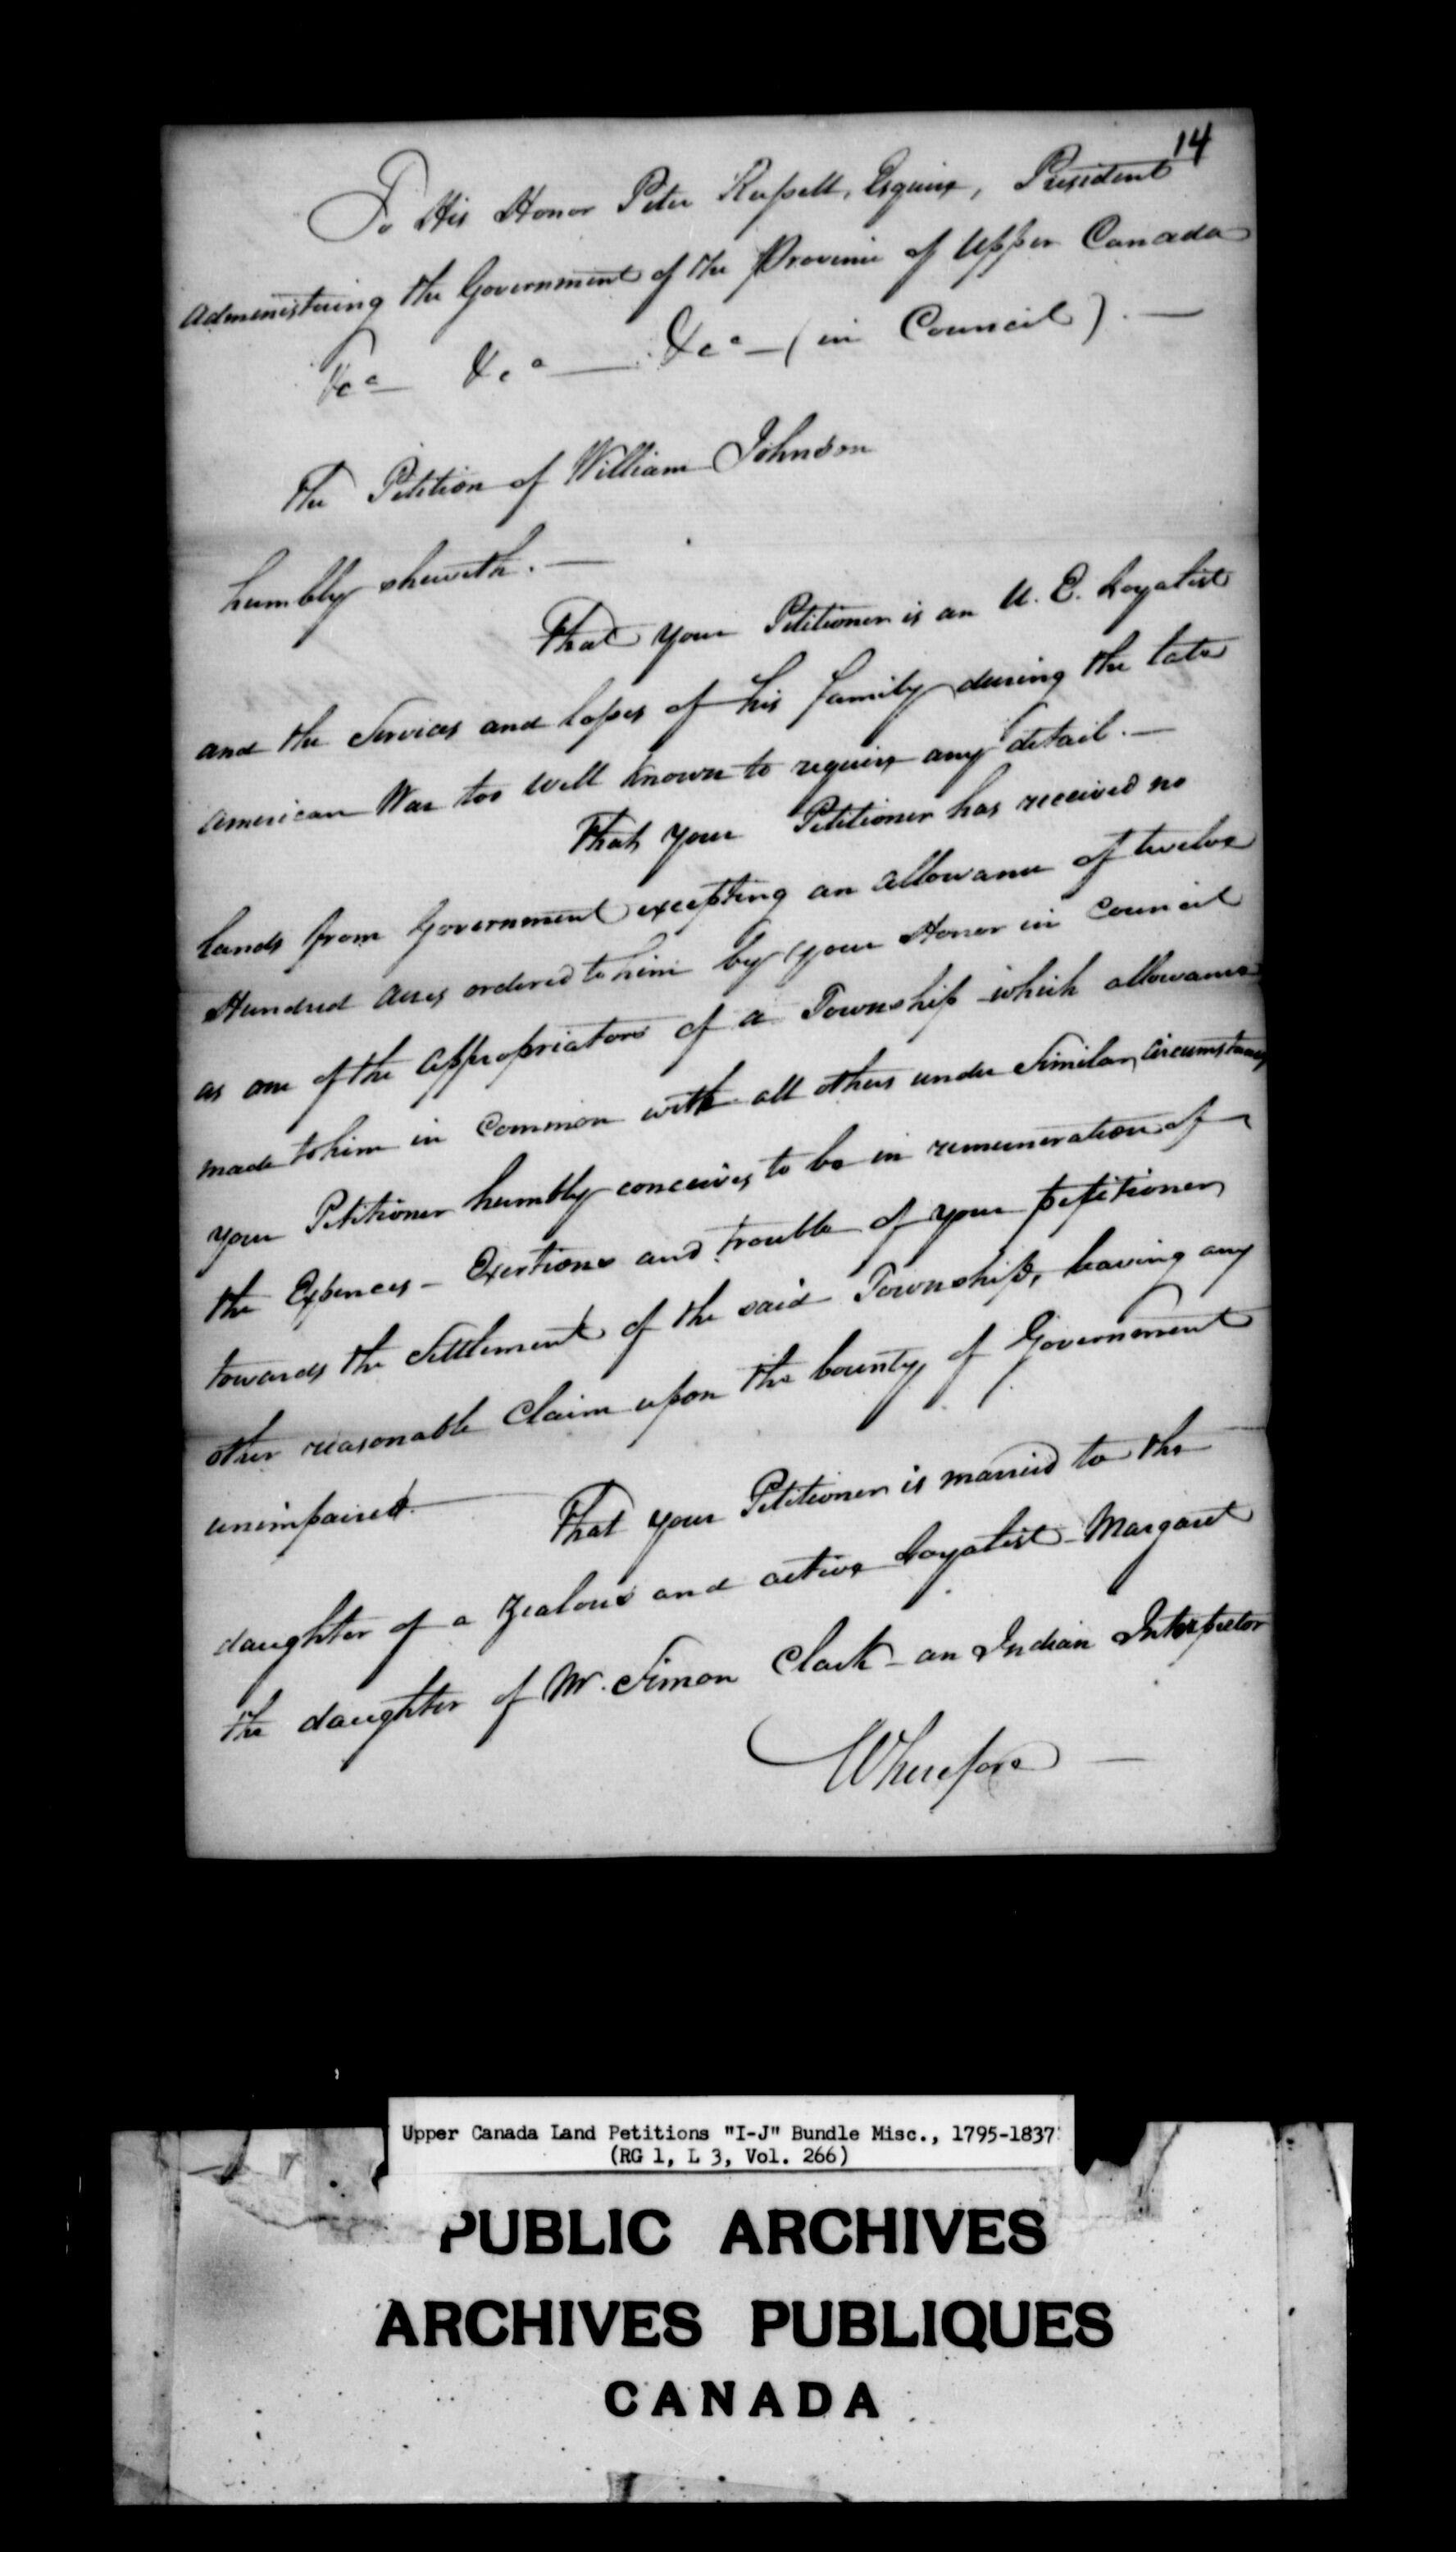 14
To His Honor Peter Russell, Esquire, President
administering the Government of the Province of Upper Canada
&ca &ca — &ca — (in Council). —
The Petition of William Johnson
humbly sheweth. —
That your Petitioner is an U. E. Loyalist
and the Services and losses of his family during the late
American War too well known to require any detail. —
That your Petitioner has received no
lands from Government excepting an allowance of twelve
Hundred acres ordered to him by your Honor in Council
as one of the appropriators of a Township which allowance
made to him in common with all others under Similar circumstances
your Petitioner humbly conceives to be in remuneration of
the Expences – Exertions and trouble of your petitioner
towards the Settlement of the said Township, leaving any
other reasonable Claim upon the bounty of Government
unimpaired —
That your Petitioner is married to the
daughter of a Zealous and active Loyalist – Margaret
the daughter of Mr. Simon Clark – an Indian Interpretor
Wherefore —
Upper Canada Land Petitions "I-J" Bundle Misc., 1795-1837
(RG 1, L 3, Vol. 266)
PUBLIC ARCHIVES
ARCHIVES PUBLIQUES
CANADA